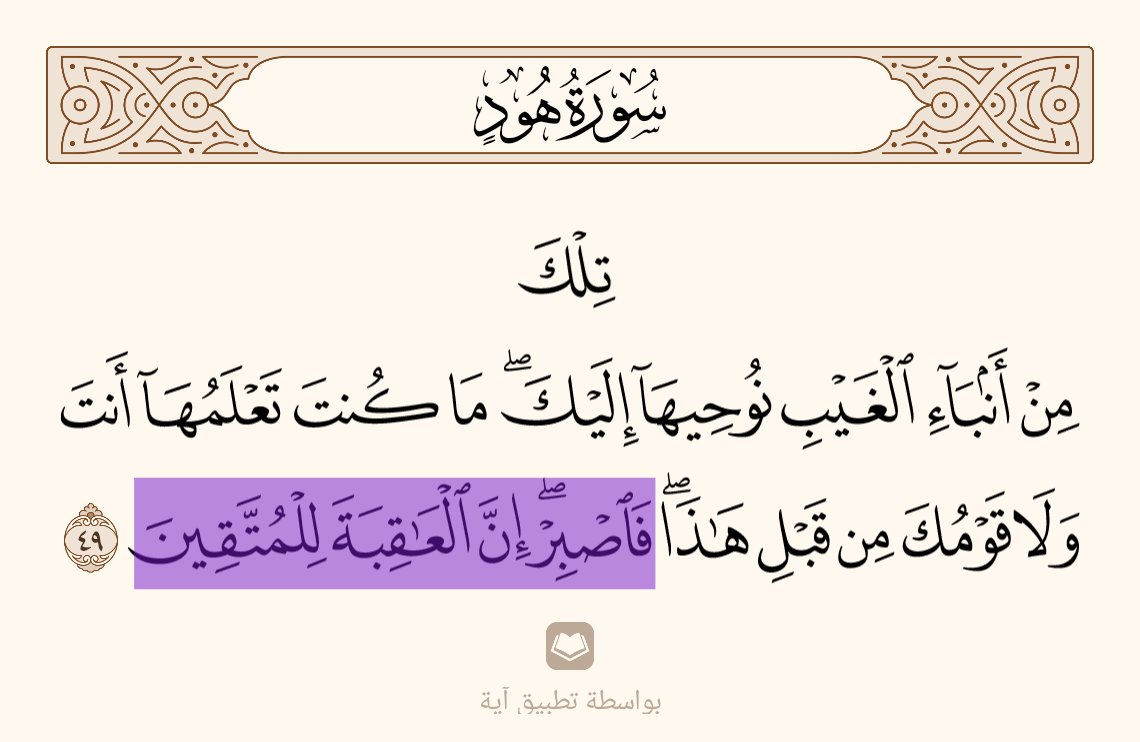 سُورَةُ هُودٍ
تِلْكَ
مِنْ أَنۢبَآءِ ٱلْغَيْبِ نُوحِيهَآ إِلَيْكَ ۖ مَا كُنتَ تَعْلَمُهَآ أَنتَ
وَلَا قَوْمُكَ مِن قَبْلِ هَـٰذَا ۖ فَٱصْبِرْ ۖ إِنَّ ٱلْعَـٰقِبَةَ لِلْمُتَّقِينَ ٤٩
بواسطة تطبيق آية